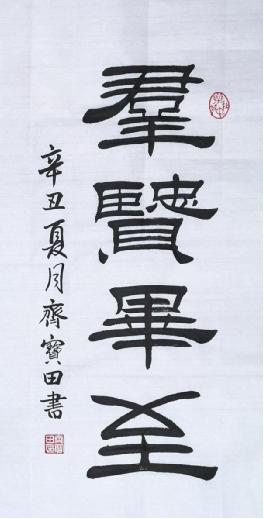 羣賢畢至
辛丑夏月齊寶田書